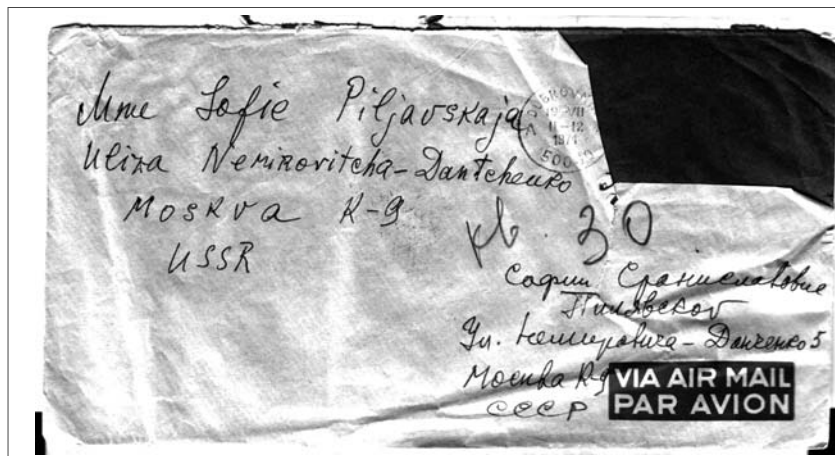 Mme Sofie Piljavskaja
Uliza Nemirovitcha-Dantchenko
Moskva K-9
USSR
кв. 30
Софии Сраниславовне
Пилявской
Ул. Немировича-Данченко 5
Москва К-9
СССР
DUBROVNIK
19. VII
11-12
197
500
VIA AIR MAIL
PAR AVION